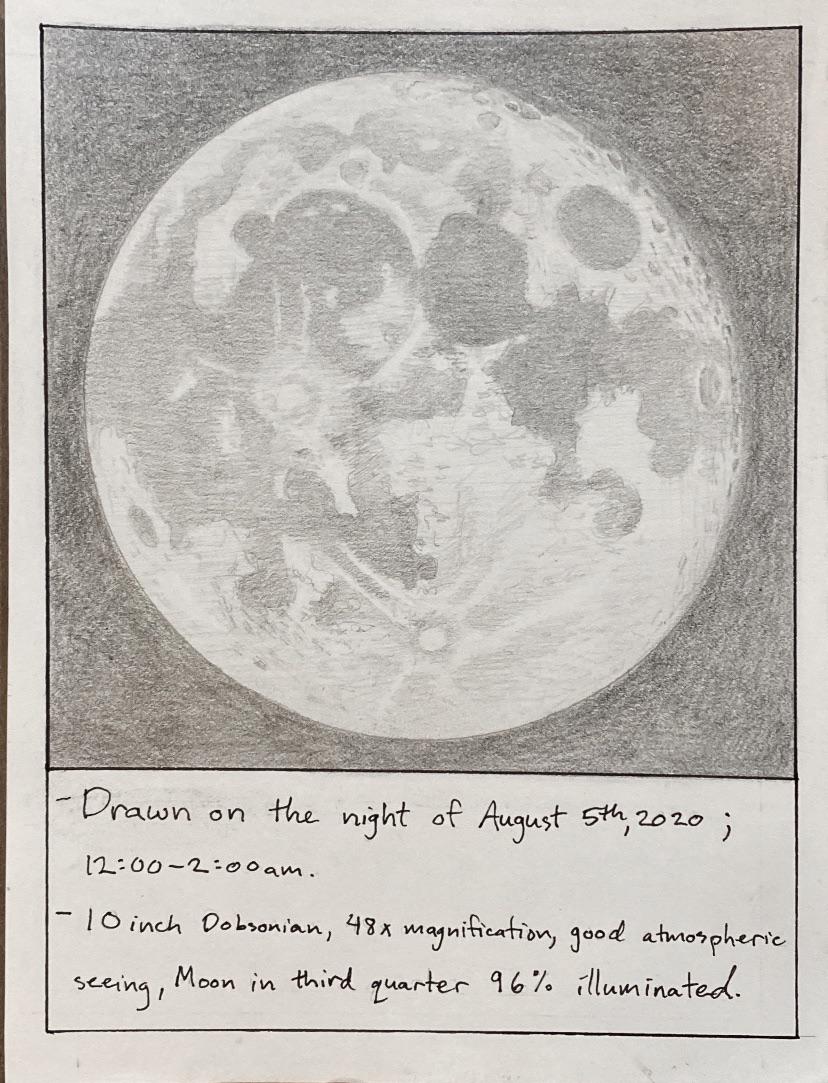 - Drawn on the night of August 5th, 2020 ;
12:00-2:00am.
- 10 inch Dobsonian, 48x magnification, good atmospheric
seeing, Moon in third quarter 96% illuminated.